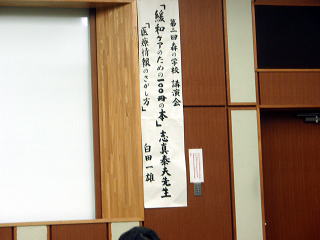 第三回森の学校 講演会
「緩和ケアのための一〇〇冊の本」志真泰夫先生
「医療情報のさがし方」 白田一雄